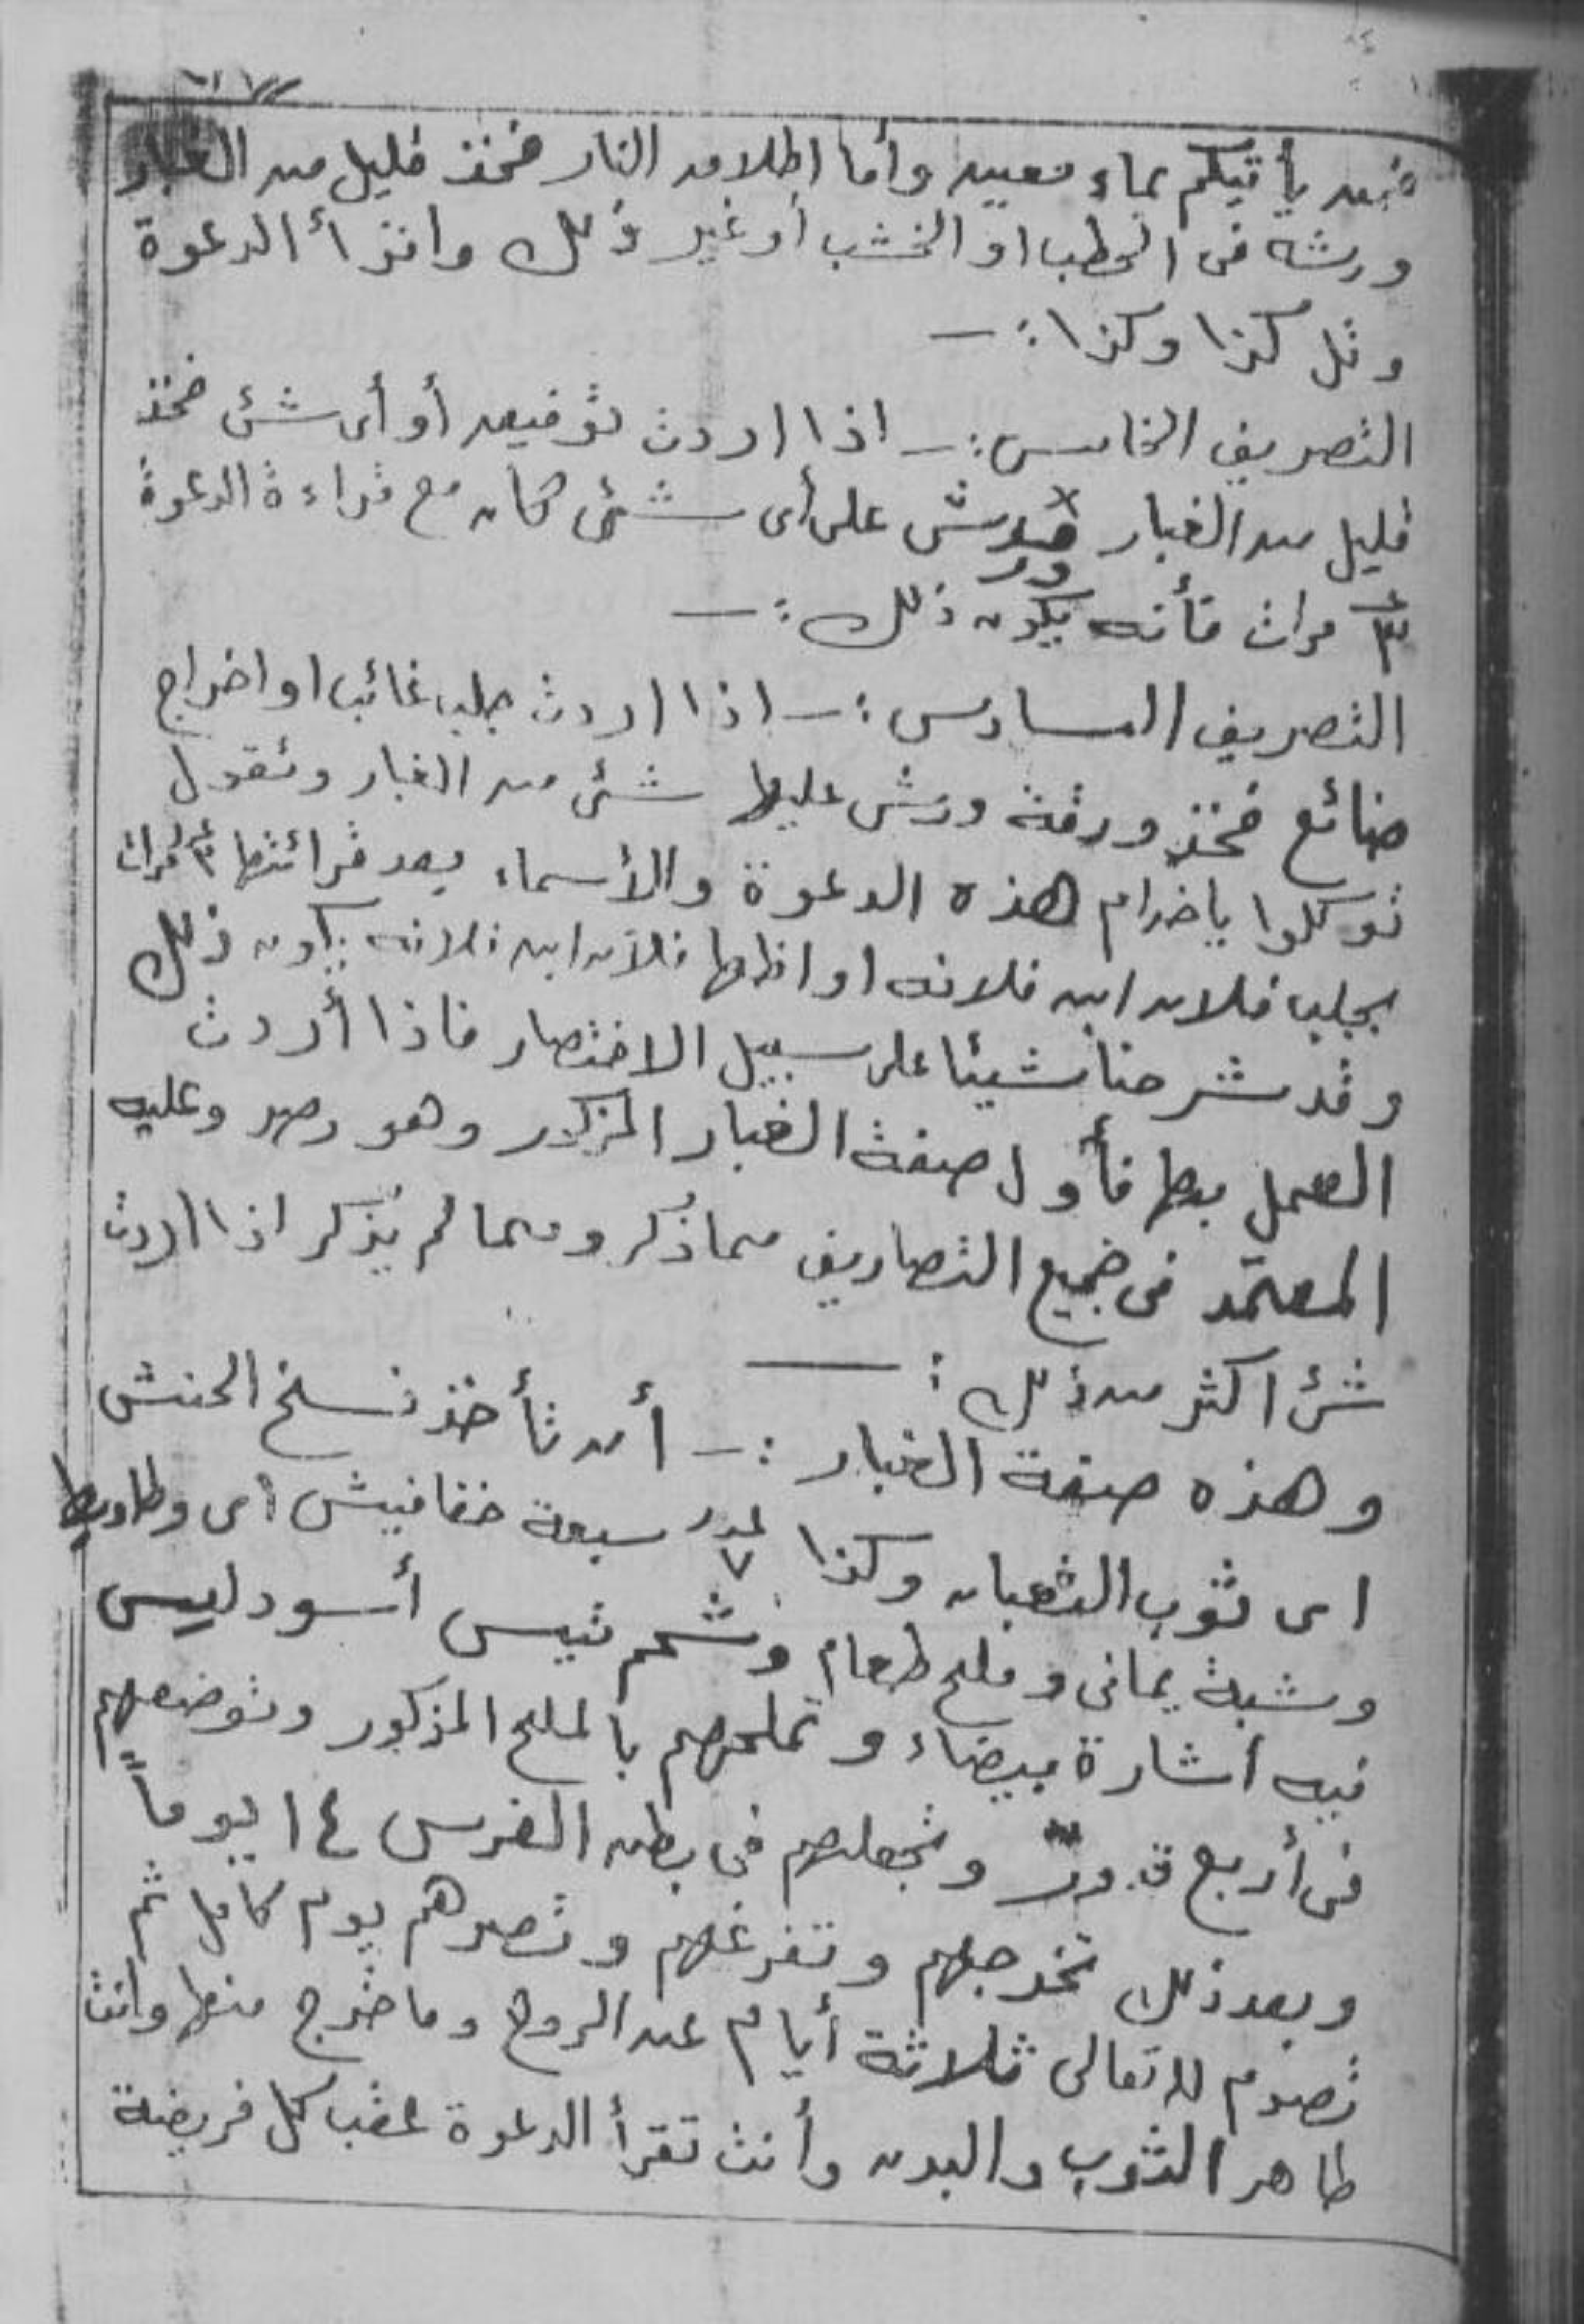 فمن يأتيكم بماء معين وأما اطلاق النار فخذ قليل من الغبار
ورشه فى الحطب او الخشب أو غير ذلك واقرأ الدعوة
وقل كذا وكذا :ـ
التصريف الخامس :ـ اذا اردت توقيف أو أى شئ فخذ
قليل من الغبار ورش على أى شئ كان مع قراءة الدعوة
٣ مرات فأنه يكون ذلك :ـ
التصريف السادس :ـ اذا اردت جلب غائب او اخراج
ضائع فخذ ورقة ورش عليها شئ من الغبار وتقول
توكلوا ياخدام هذه الدعوة والأسماء بعد قرائتها ٣ مرات
بجلب فلان ابن فلانه او اظهار فلان ابن فلانه يكون ذلك
وقد شرحنا شيئا على سبيل الاختصار فاذا أردت
العمل بها فأول صفة الغبار المذكور وهو وعليه
المعتمد فى جميع التصاريف مما ذكر ومما لم يذكر اذا اردت
شئ اكثر من ذلك :ـ
وهذه صفة الغبار :ـ أن تأخذ نسلخ الحنش
اى ثوب الثعبان وكذا عدد ٧ سبعة خفافيش اى وطاويط
وشبة يمانى وملح طعام وشحم تيس أسود ليس
فيه اشارة بيضاء وتملحهم بالملح المذكور وتوضعهم
فى أربع قدور وتجعلهم فى بطن الفرس ١٤ يوماً
وبعد ذلك تخرجهم وتفرغهم وتصرهم يوم كامل ثم
تصوم لله تعالى ثلاثة أيام عن الروح وما خرج منها وانت
طاهر الثوب والبدن وأنت تقرأ الدعوة عقب كل فريضة